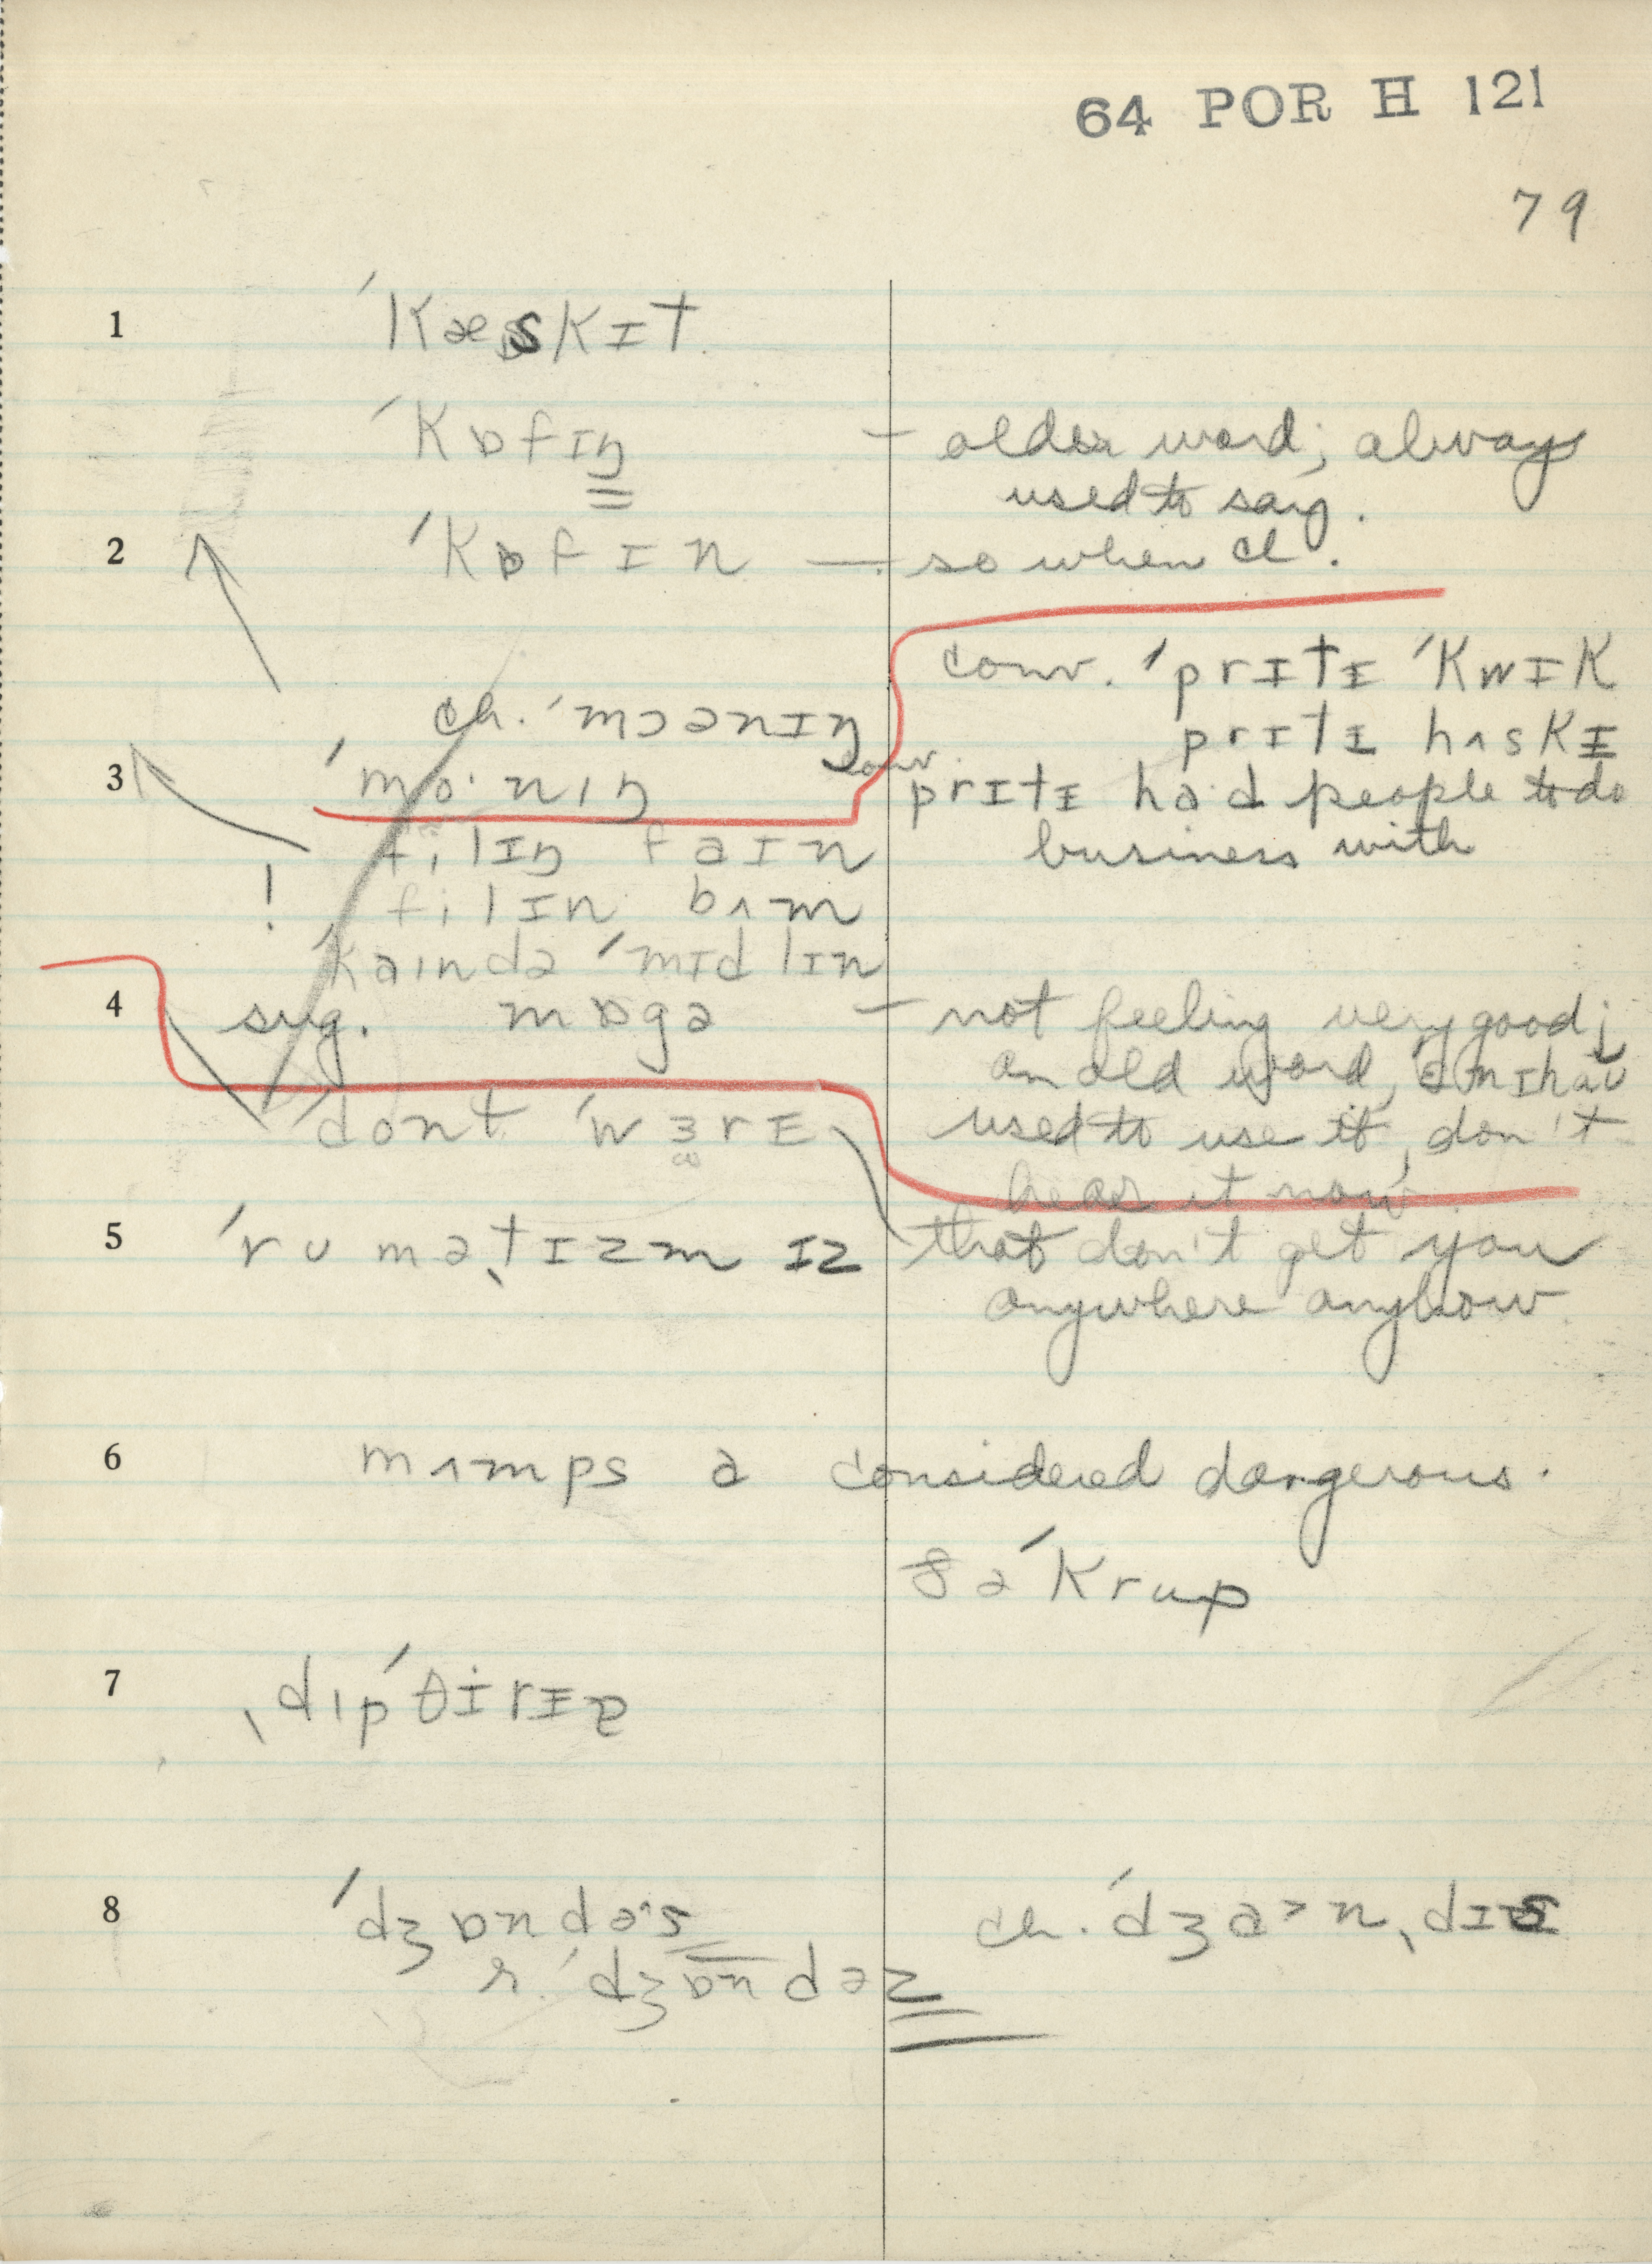 64 POR H 121
79
1 ˈkæskɪt
ˈkɒfɪŋ – older word; always
used to say.
2 ˈkɒfɪn — so when cl.
conv. ˈprɪtɪ ˈkwɪk
prɪtɪ hʌskɪ
ch. ˈmɔənɪŋ
3 ˈmɒ·nɪŋ
conv. prɪtɪ had people to do
business with
filɪŋ faɪn
! filɪn bʌm
kaɪndə ˈmɪdlɪn
4 sug. mɒgə – not feeling very good;
an old word,
used to use it, don't
hear it now
dont ˈwɜrɪ
that don't get you
anywhere anyhow
5 ˈrumәˌtɪzm ɪz
6 mʌmps ə considered dangerous.
ðə ˈkrup
7 ˌdɪpˈθɪrɪə
8 ˈdʒɒndəs ch. ˈdʒanˌdɪs
r. ˈdʒɒndəz